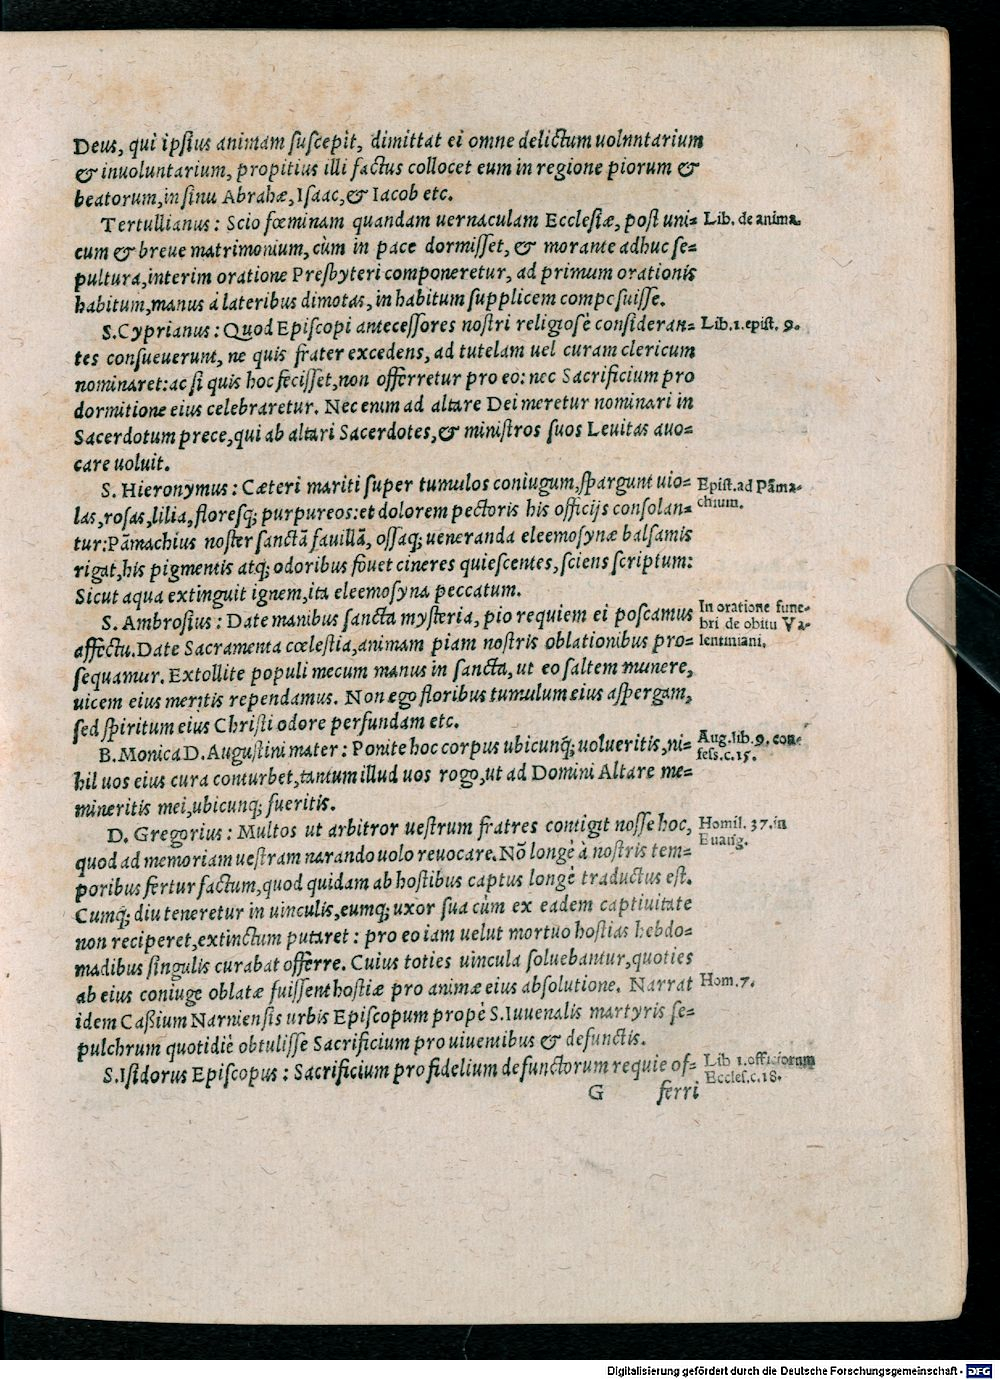 Deus, qui ipſius animam ſuſcepit, dimittat ei omne delictum uolnntarium
& inuoluntarium, propitius illi factus collocet eum in regione piorum &
beatorum, in ſinu Abrahæ, Iſaac, & Iacob etc.
Tertullianus: Scio fœminam quandam uernaculam Eccleſiæ, poſt uni=
Lib. de anima.
cum & breue matrimonium, cùm in pace dormiſſet, & morante adhuc ſe=
pultura, interim oratione Presbyteri componeretur, ad primum orationis
habitum, manus à lateribus dimotas, in habitum ſupplicem compoſuiſſe.
S. Cyprianus: Quod Epiſcopi anteceſſores noſtri religiosè conſideran=
Lib. 1. epiſt. 9.
tes conſueuerunt, ne quis frater excedens, ad tutelam uel curam clericum
nominaret: ac ſi quis hoc feciſſet, non offerretur pro eo: nec Sacrificium pro
dormitione eius celebraretur. Nec enim ad altare Dei meretur nominari in
Sacerdotum prece, qui ab altari Sacerdotes, & miniſtros ſuos Leuitas auo=
care uoluit.
S. Hieronymus: Cæteri mariti ſuper tumulos coniugum, ſpargunt uio=
Epiſt. ad Pāma-
chium.
las, roſas, lilia, floresq; purpureos: et dolorem pectoris his officijs conſolan=
tur: Pāmachius noſter ſanctā fauillā, oſſaq; ueneranda eleemoſynæ balſamis
rigat, his pigmentis atq; odoribus fouet cineres quieſcentes, ſciens ſcriptum:
Sicut aqua extinguit ignem, ita eleemoſyna peccatum.
S. Ambroſius: Date manibus ſancta myſteria, pio requiem ei poſcamus
In oratione fune-
bri de obitu Va-
lentiniani.
affectu. Date Sacramenta cœleſtia, animam piam noſtris oblationibus pro=
ſequamur. Extollite populi mecum manus in ſancta, ut eo ſaltem munere,
uicem eius meritis rependamus. Non ego floribus tumulum eius aſpergam,
ſed ſpiritum eius Chriſti odore perfundam etc.
B. Monica D. Auguſtini mater: Ponite hoc corpus ubicunq; uolueritis, ni=
Aug. lib. 9. con-
feſs. c. 15.
hil uos eius cura conturbet, tantum illud uos rogo, ut ad Domini Altare me=
mineritis mei, ubicunq; fueritis.
D. Gregorius: Multos ut arbitror ueſtrum fratres contigit noſſe hoc,
Homil. 37. in
Euang.
quod ad memoriam ueſtram narando uolo reuocare. Nō longè à noſtris tem=
poribus fertur factum, quod quidam ab hoſtibus captus longè traductus eſt.
Cumq; diu teneretur in uinculis, eumq; uxor ſua cùm ex eadem captiuitate
non reciperet, extinctum putaret: pro eo iam uelut mortuo hoſtias hebdo=
madibus ſingulis curabat offerre. Cuius toties uincula ſoluebantur, quoties
ab eius coniuge oblatæ fuiſſent hoſtiæ pro animæ eius abſolutione. Narrat
Hom. 7.
idem Caßium Narnienſis urbis Epiſcopum propè S. Iuuenalis martyris ſe=
pulchrum quotidiè obtuliſſe Sacrificium pro uiuentibus & defunctis.
S. Iſidorus Epiſcopus: Sacrificium pro fidelium defunctorum requie of=
Lib 1. officiorum
Eccleſ. c. 18.
G ferri
Digitalisierung gefördert durch die Deutsche Forschungsgemeinschaft - DFG